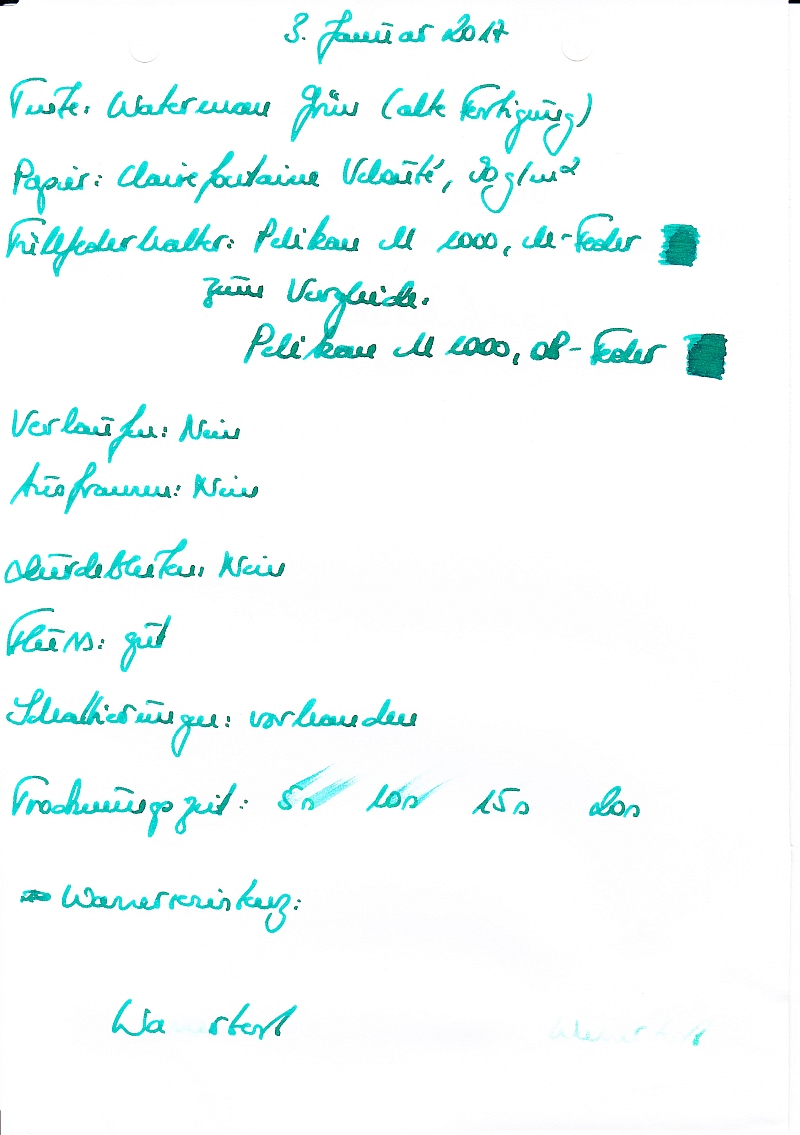 3. Januar 2017
Tinte: Waterman Grün (alte Fertigung)
Papier: Clairefontaine Velouté, 90 g/m²
Füllfederhalter: Pelikan M 1000, M-Feder
zum Vergleich:
Pelikan M 1000, OB-Feder
Verlaufen: Nein
Ausfransen: Nein
Durchbluten: Nein
Fluss: gut
Schattierungen: vorhanden
Trocknungszeit: 5s 10s 15s 20s
Wasserresistenz:
Wassertest